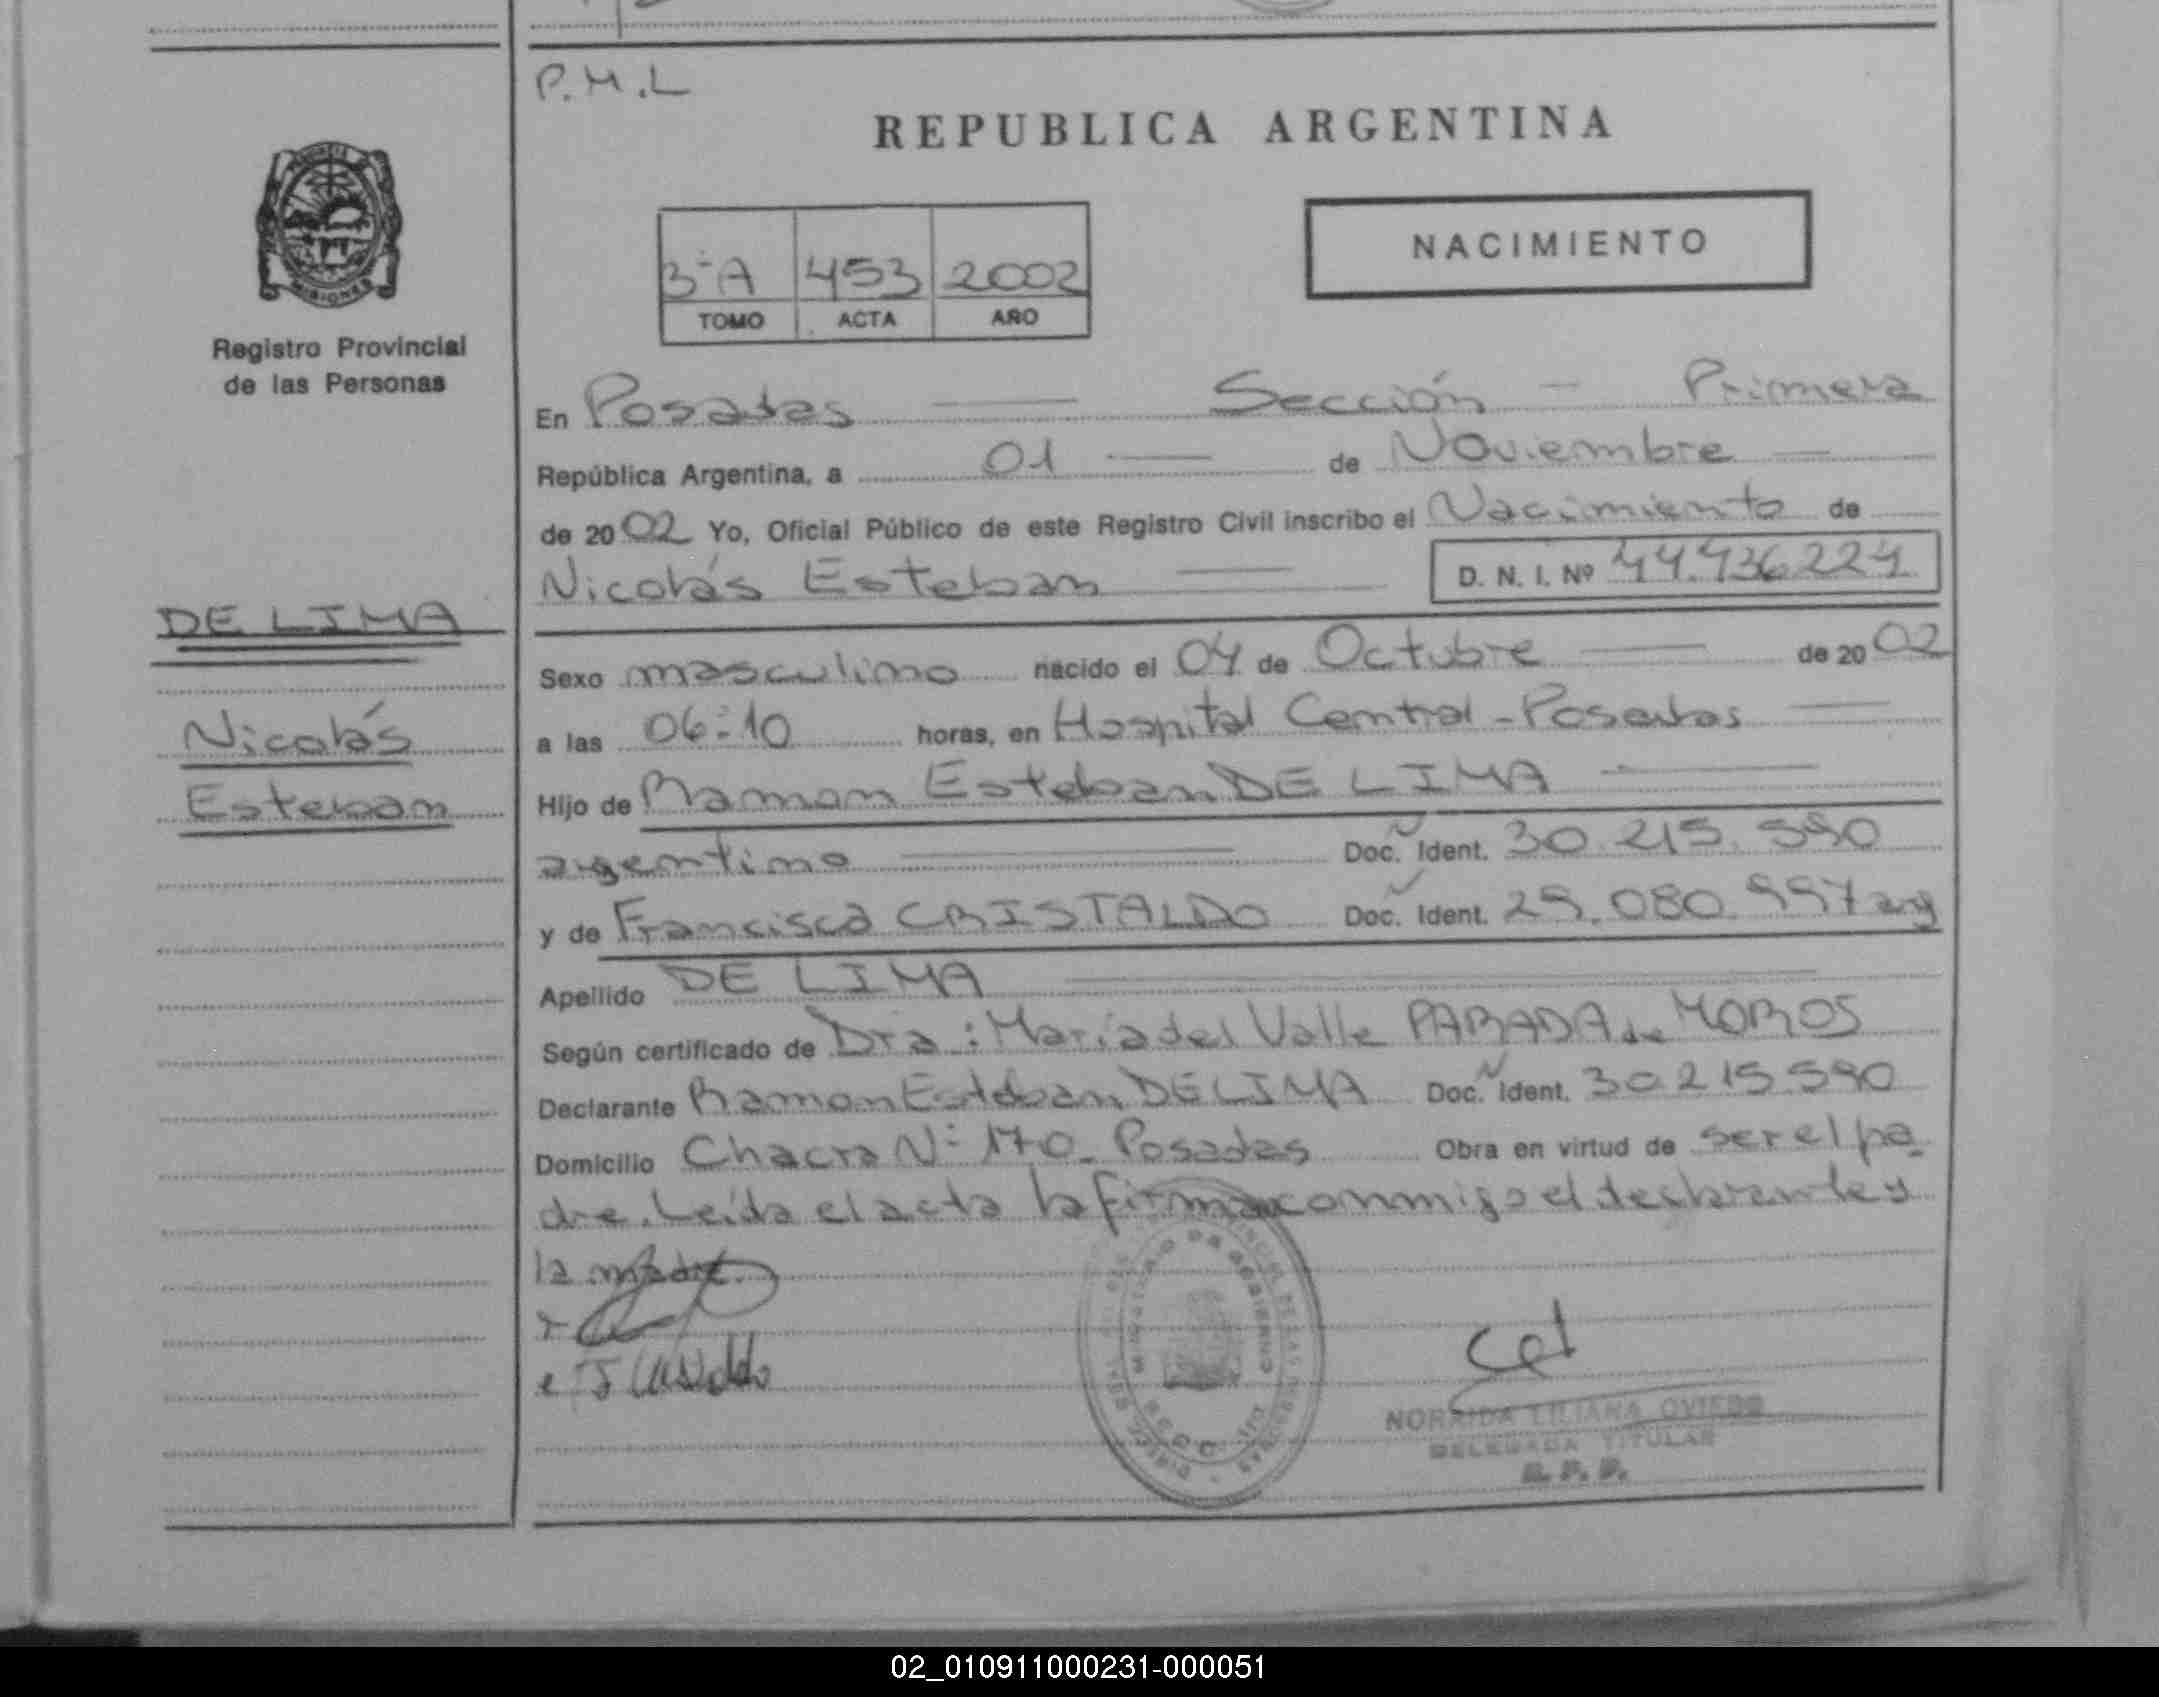 P.M.L
REPUBLICA ARGENTINA
NACIMIENTO
3ºA 453 2002
TOMO ACTA AÑO
MISIONES
Registro Provincial
de las Personas
En Posadas Sección - Primera
República Argentina, a 01 de Noviembre
de 2002 Yo, Oficial Público de este Registro Civil inscribo el Nacimiento de
Nicolás Esteban D. N. I. Nº 44.436.224
DE LIMA
Nicolás
Esteban
Sexo masculino nacido el 04 de Octubre de 2002
a las 06:10 horas, en Hospital Central - Posadas
Hijo de Ramon Esteban DE LIMA
argentino Doc. Ident. 30.215.590
y de Francisca CRISTALDO Doc. Ident. 29.080.997 arg
Apellido DE LIMA
Según certificado de Dra: María del Valle PARADA de MOROS
Declarante Ramon Esteban DE LIMA Doc. Ident. 30.215.590
Domicilio Chacra Nº 170 - Posadas Obra en virtud de ser el pa-
dre. Leída el acta la firman conmigo el declarante y
la madre.
NORAIDA LILIANA OVIEDO
DELEGADA TITULAR
R. P. P.
02_010911000231-000051